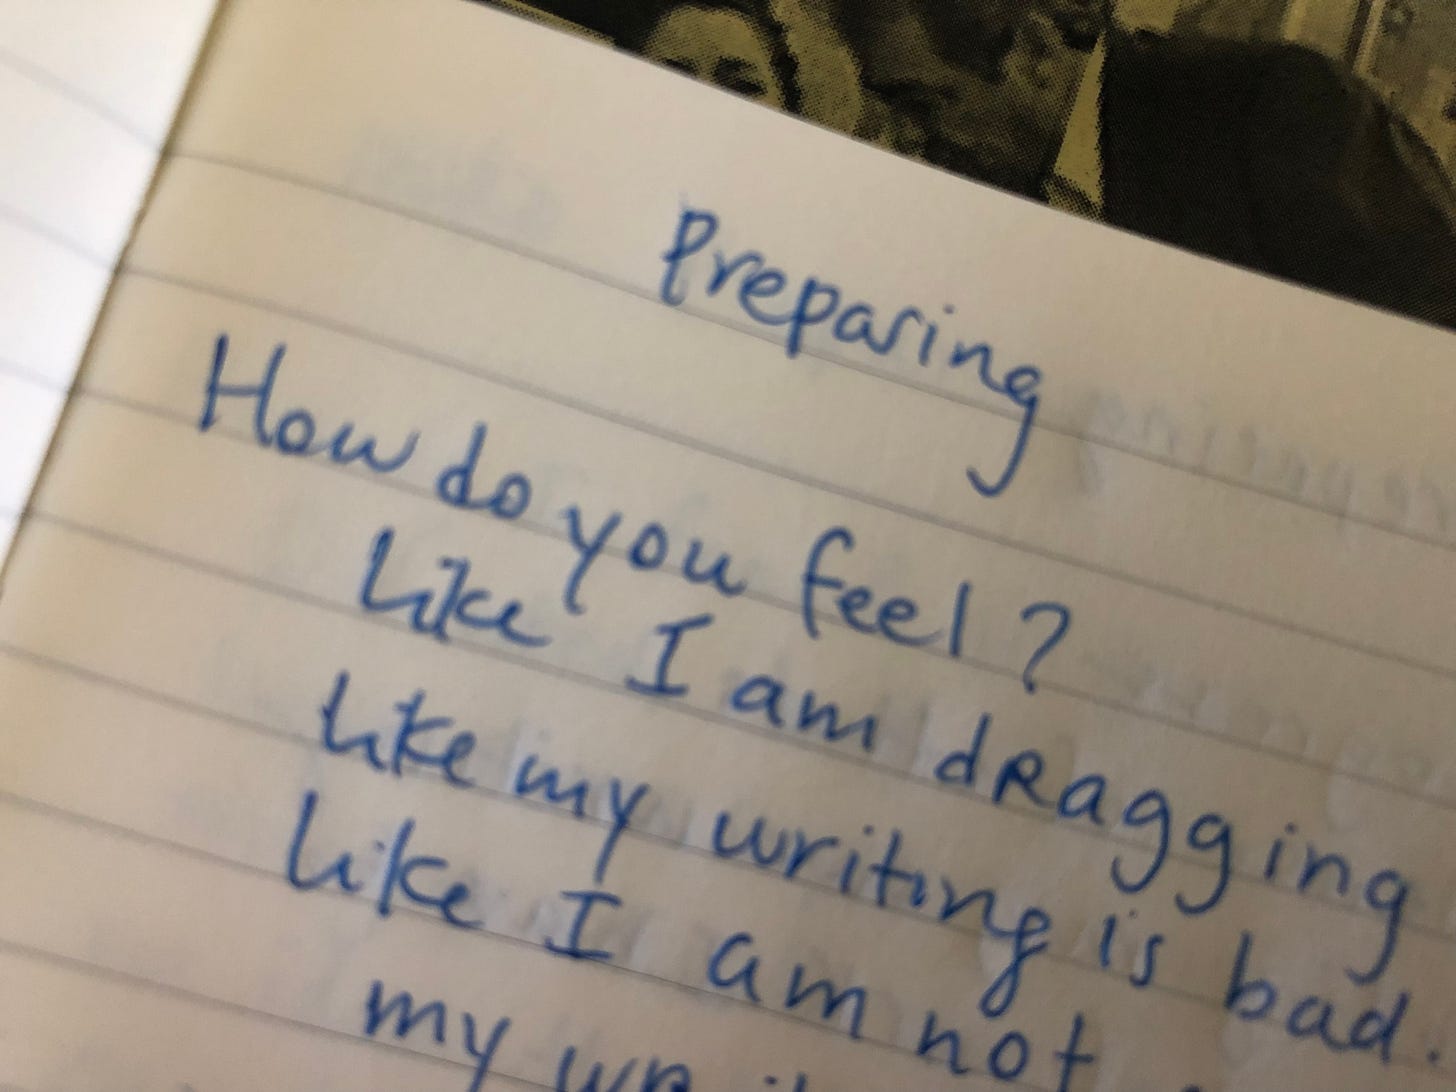 Preparing
How do you feel?
like I am dragging
like my writing is bad.
like I am not
my